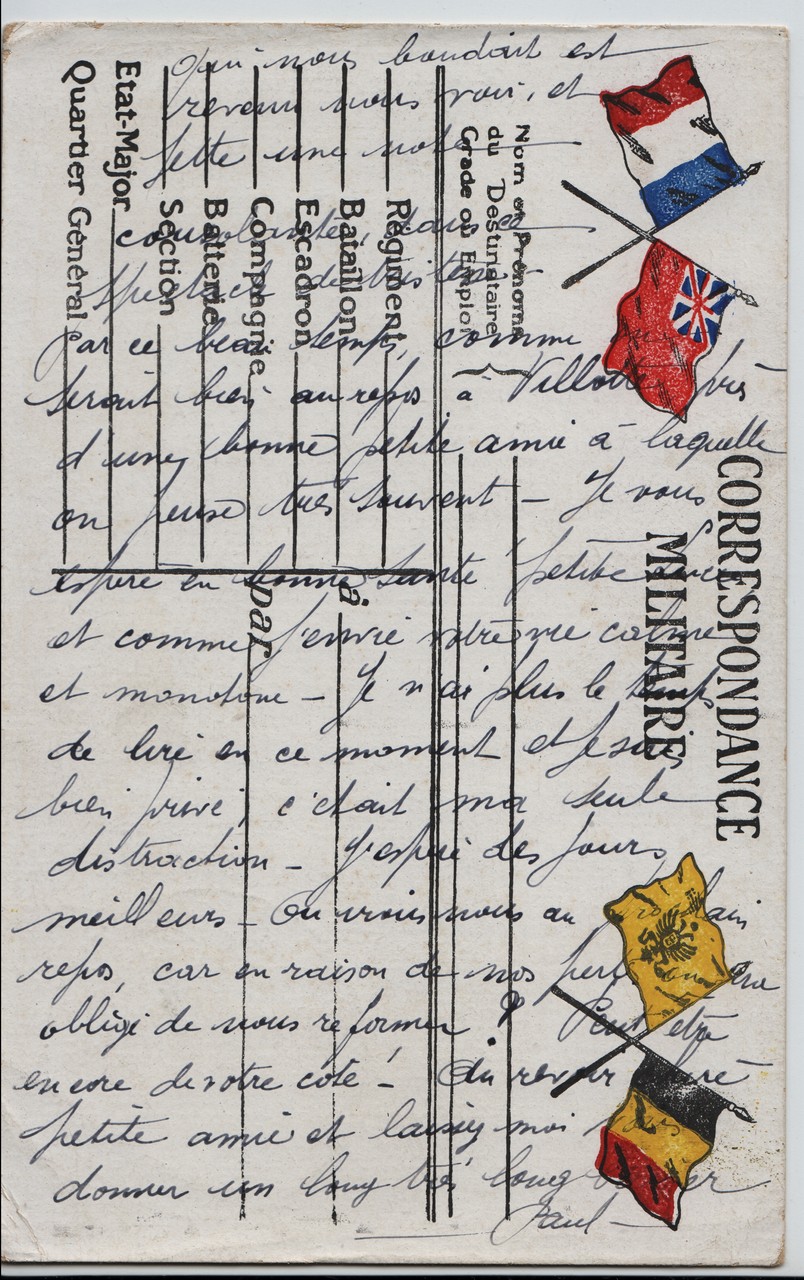 qui nous boudait est
revenu nous voir, et
jette une note
consolante, dans ce
spectacle de tristesse
Par ce beau temps, comme
serait bien au repos à Villotte près
d'une bonne petite amie à laquelle
on pense très souvent – Je vous
espère en bonne santé petite amie
et comme j'envie votre vie calme
et monotone – Je n'ai plus le temps
de lire en ce moment et je suis
bien privé, c'était ma seule
distraction – J'espère des jours
meilleurs – Où irons nous au prochain
repos, car en raison de nos pertes on sera
obligé de nous reformer ? Peut être
encore de votre côté ! – Au revoir
petite amie et laissez moi vous
donner un long très long baiser
Paul –
CORRESPONDANCE
MILITAIRE
Nom et Prénoms
du Destinataire
Grade ou Emploi
Régiment
Bataillon
Escadron
Compagnie
Batterie
Section
Etat-Major
Quartier Général
à
par